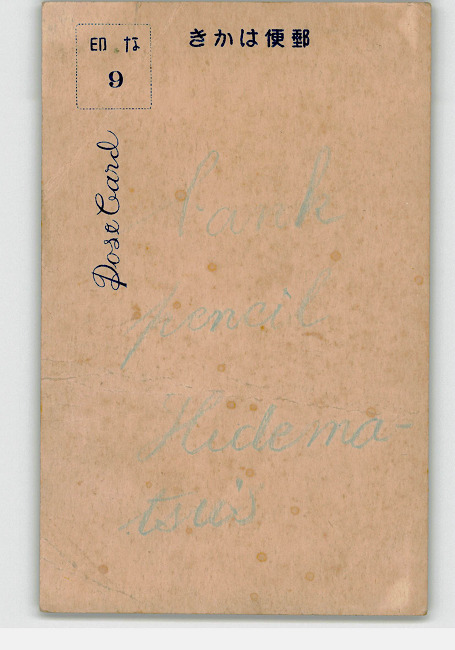 郵便はかき
な印
9
Pose Card
pencil
Hidema-
tsu's